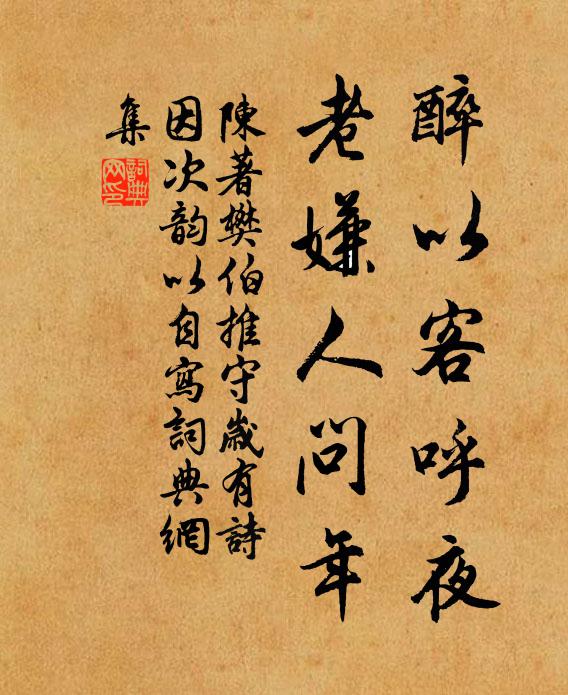 醉以客呼夜
老嫌人問年
陳著樊伯推守歲有詩
因次韵以自寫詞典網
集
詞典
网印